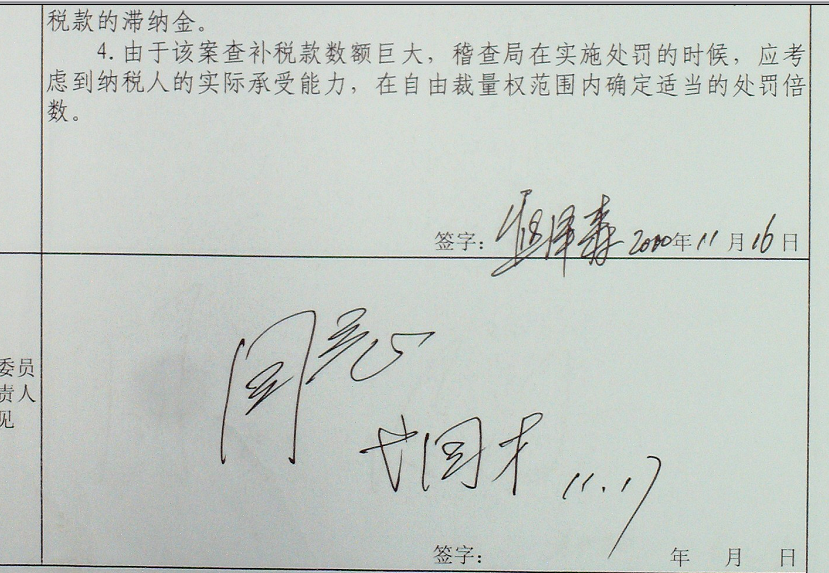 税款的滞纳金。
4. 由于该案查补税款数额巨大，稽查局在实施处罚的时候，应考
虑到纳税人的实际承受能力，在自由裁量权范围内确定适当的处罚倍
数。
签字： 2010年11月16日
同意
委员
责人
见
11.17
签字： 年 月 日